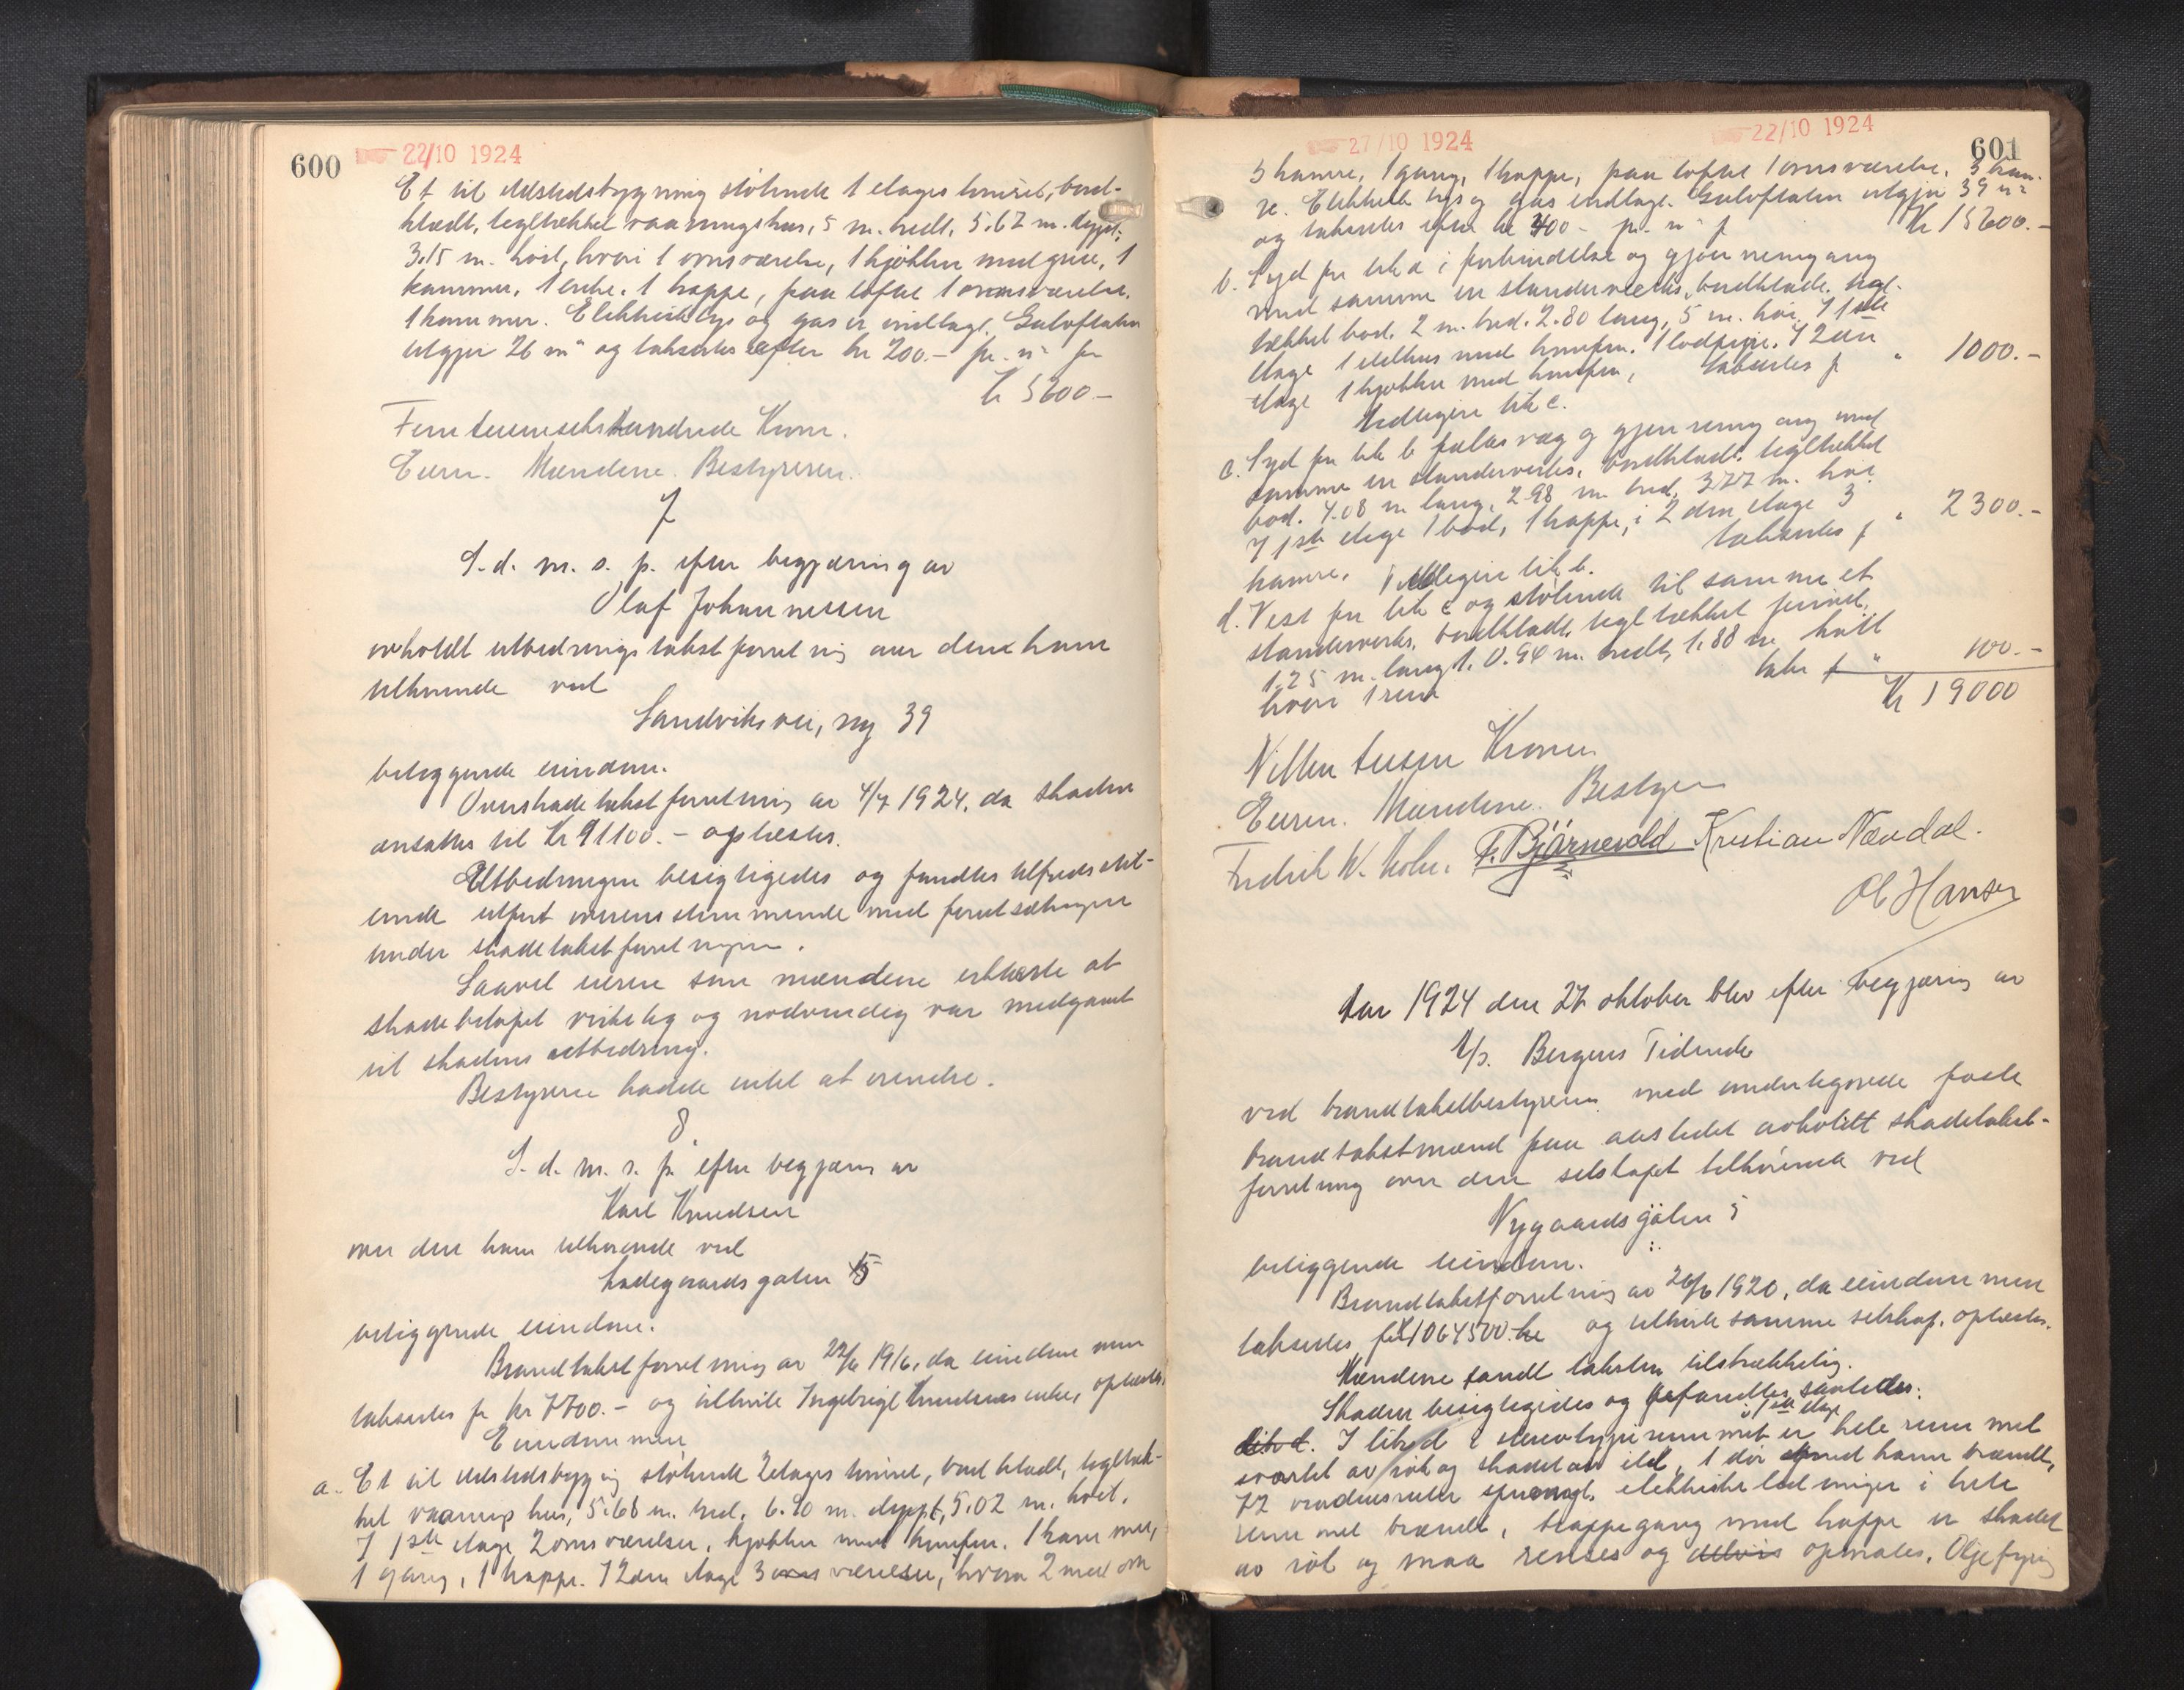 600
22/10 1924
Et til utstedsbygning stötende 1 etages tmret, bord-
klædt, tegltækket vaaningshus, 5 m. bredt, 5.67 m. dypt,
3.15 m. höit, hvori 1 ovnsværelse, 1 kjökken med grue, 1
kammer, 1 entre, 1 trappe, paa loftet 1 ovnsværelse,
1 kammer. Elektrisk lys og gas er indlagt. Gulvflaten
utgjör 26 m² og takseres efter kr 200.- pr. m² for
kr 5600-
Femtusenseks hundrede Kroner.
Eieren. Mændene. Bestyreren.
7
S. d. m. s. p. efter begjæring av
Olaf Johannessen
avholdt utbedringstakstforretning over den ham
tilhørende ved
Sandviksvei, ny 39
beliggende eiendom.
Overskadetakstforretning av 4/7 1924, da skaden
ansattes til Kr 91100.- oplæstes.
Utbedringen besigtigedes og fandtes tilfredsstil-
lende utført overensstemmende med forutsætningen
under skadetakstforretningen.
Saavel eieren som mændene erklærte at
skadebeløpet virkelig og nødvendig var medgaaet
til skadens utbedring.
Bestyreren hadde intet at erindre.
8
S. d. m. s. p. efter begjæring av
Karl Knudsen
over den ham tilhørende ved
Ladegaardsgaten 15
beliggende eiendom.
Brandtakstforretning av 22/6 1916, da eiendommen
takseredes for kr 7700.- og tilhørte Ingebrigt Knudsens enke, oplæstes.
Eiendommen
a. Et til utstedsbygning stötende 2 etages tmret, bord klædt, tegltæk-
ket vaanings hus, 5.68 m. bred, 6.90 m. dypt, 5.02 m. höit.
I 1ste etage 2 ovnsværelser, kjøkken med komfur, 1 kammer,
1 gang, 1 trappe. I 2den etage 3 værelser, hvorav 2 med ovn
27/10 1924
22/10 1924
601
3 kamre, 1 gang, 1 trappe, paa loftet 1 ovnsværelse, 3 kam-
re. Elektrisk lys og gas indlagt. Gulvflaten utgjör 39 m²
og takseres efter kr 400- pr. m² f
Kr 15600.-
b. Syd for litr a i forbindelse og gjennemgang
med samme en standerverks, bordklædt, tegl-
tækket bod, 2 m. bred, 2.80 lang, 5 m. høi. I 1ste
etage 1 ildhus med komfur, 1 lodpipe. I 2den
etage 1 kjøkken med komfur, takseres f " 1000.-
Vedligger litr c.
c. Syd for litr b fælles væg og gjennemgang med
samme en standerverks, bordklædt, tegltækket
bod, 4.08 m lang, 2.98 m bred, 3.77 m. høi.
I 1ste etage 1 bod, 1 trappe, i 2den etage 3
kamre.
takseres f " 2300.-
Vedligger litr b.
d. Vest for litr c og stötende til samme et
standerverks, bordklædt, tegltækket privet,
1.25 m. langt, 0.94 m. bredt, 1.88 m høit
hvori 1 rum
takr f " 100.-
Kr 19000
Nitten tusen Kroner
Eieren. Mændene. Bestyrer
Fredrik W. Holm. F. Bjørnevold Kristian Nævdal.
Ol Hansen
Aar 1924 den 27 oktober blev efter begjæring av
A/s. Bergens Tidende
ved brandtakstbestyreren med undertegnede faste
brandtakstmænd paa aastedet avholdt skadetakst-
forretning over den selskapet tilhørende ved
Nygaardsgaten 5
beliggende eiendom.
Brandtakstforretning av 26/6 1920, da eiendommen
takseredes for 1064500 kr og tilhørte samme selskap, oplæstes.
Mændene fandt taksten tilstrækkelig.
Skaden besigtigedes og befandtes saaledes:
i 1ste etage
litr d. I litr d i stereotyperrummet er hele rummet
svertet av røk og skadet av ild, 1 dør med karm brændt,
72 vindusruter sprængt, elektriske ledninger i hele
rummet brændt, trappegang med trappe er skadet
av røk og maa renses og delvis opmales. Oljefyring